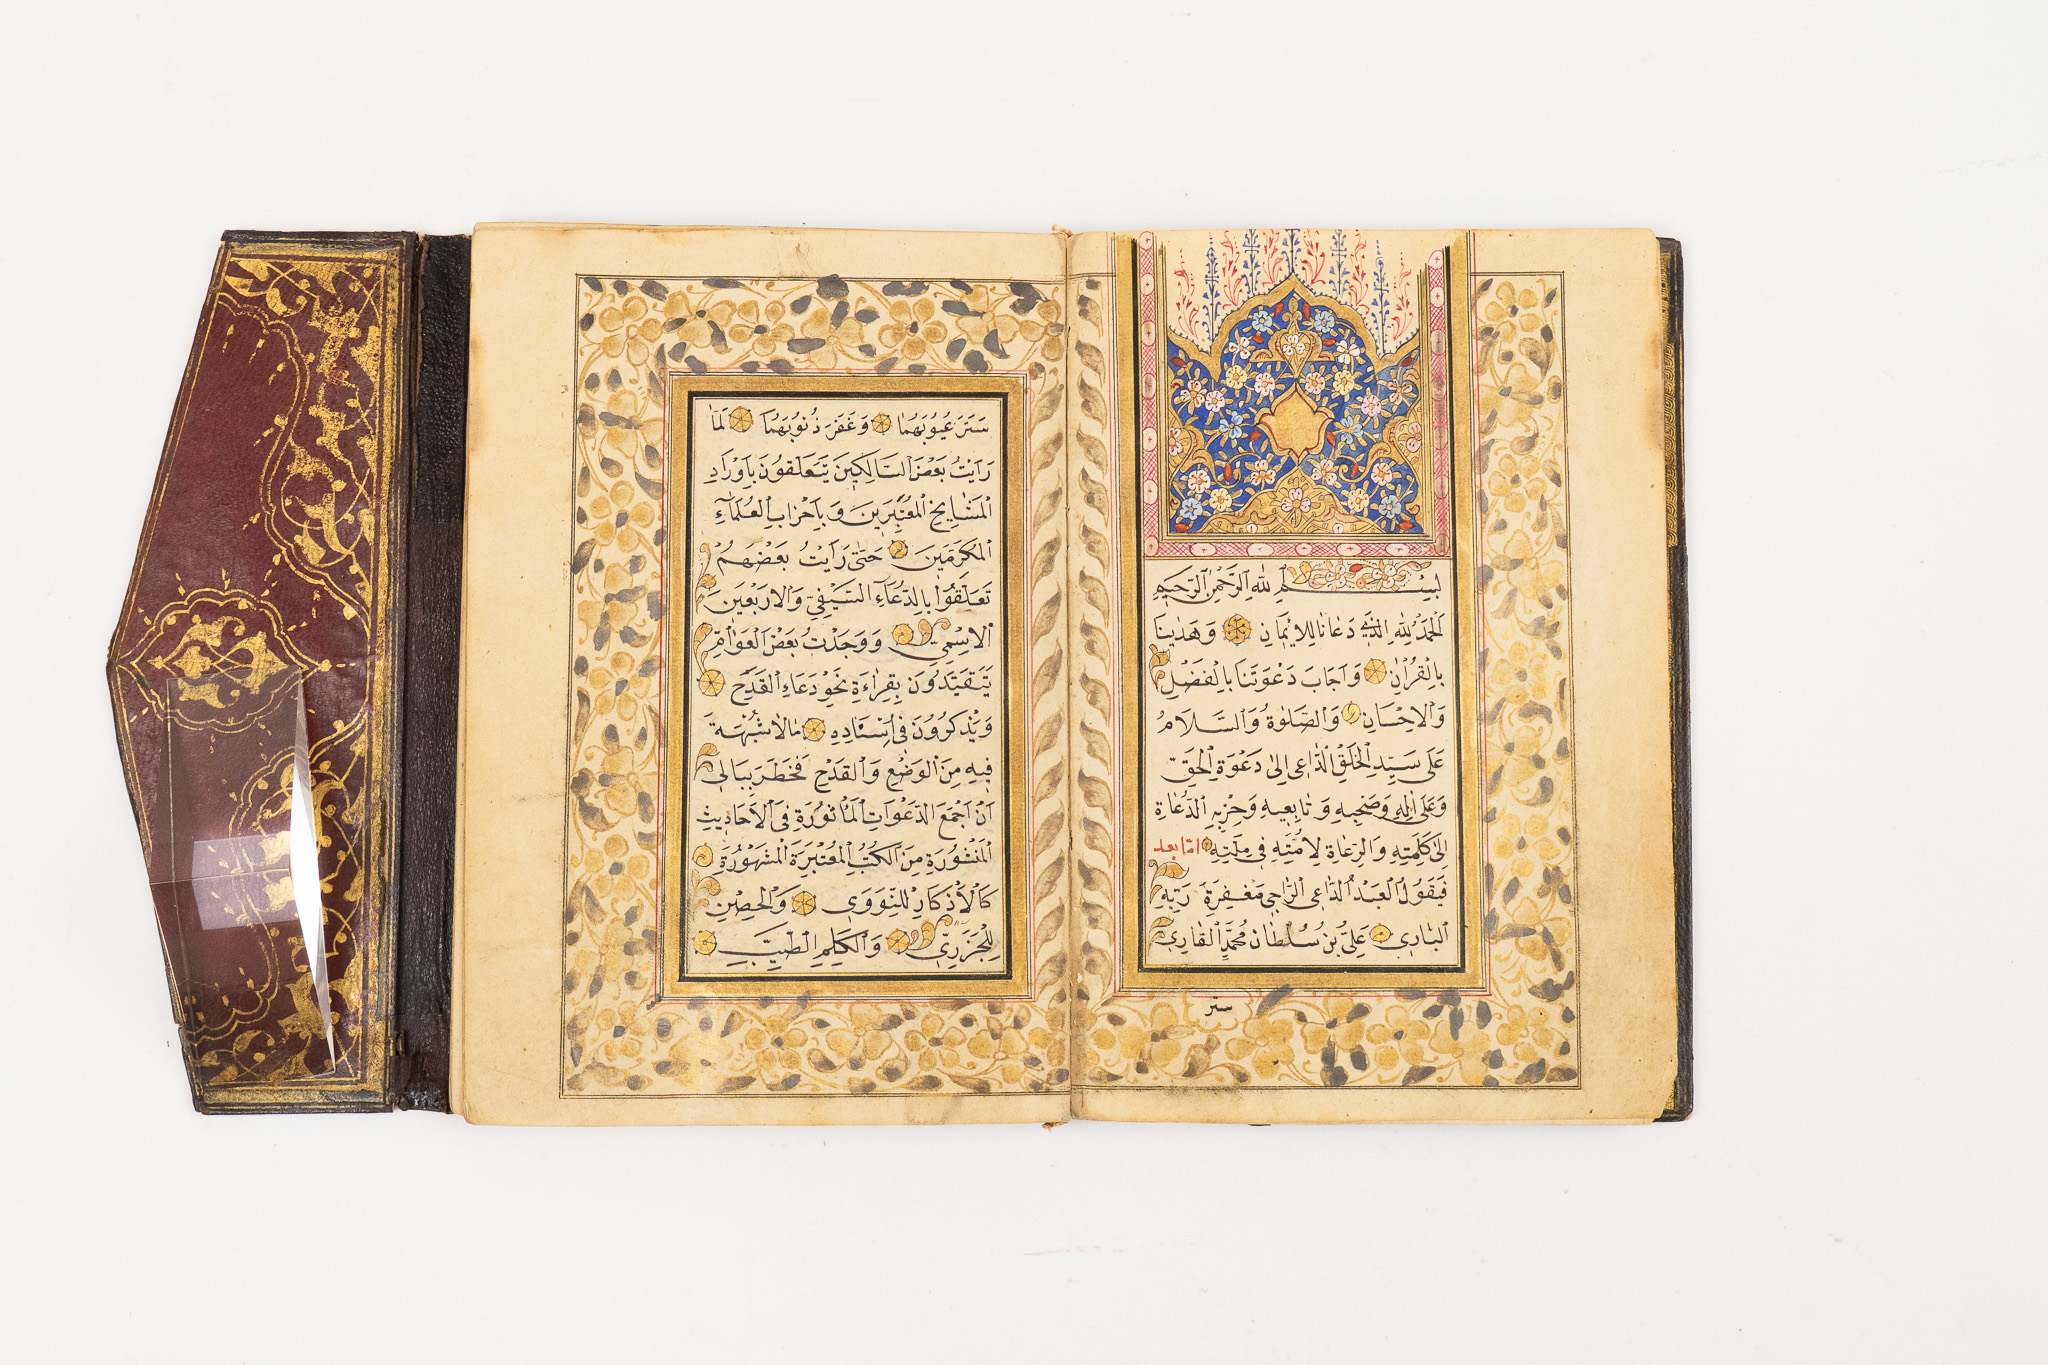 بِسْمِ اللّٰهِ الرَّحْمٰنِ الرَّحِيمِ
اَلْحَمْدُ لِلّٰهِ الَّذِي دَعَانَا لِلْاِيمَانِ وَهَدٰينَا
بِالْقُرْاٰنِ وَاَجَابَ دَعْوَتَنَا بِالْفَضْلِ
وَالْاِحْسَانِ وَالصَّلٰوةُ وَالسَّلَامُ
عَلٰى سَيِّدِ الْخَلْقِ الدَّاعِى اِلٰى دَعْوَةِ الْحَقِّ
وَعَلٰى اٰلِهِ وَصَحْبِهِ وَتَابِعِيهِ وَحِزْبِهِ الدُّعَاةِ
اِلٰى كَلِمَتِهِ وَالرُّعَاةِ لِاُمَّتِهِ فِى مِلَّتِهِ اما بعد
فَيَقُولُ الْعَبْدُ الدَّاعِى الرَّاجِى مَغْفِرَةَ رَبِّهِ
الْبَارِي عَلِيُّ بْنُ سُلْطَان مُحَمَّدٍ الْقَارِي
ستر
سَتَرَ عُيُوبَهُمَا وَغَفَرَ ذُنُوبَهُمَا لَمَّا
رَاَيْتُ بَعْضَ السَّالِكِينَ يَتَعَلَّقُونَ بِاَوْرَادِ
الْمَشَايِخِ الْمُعْتَبَرِينَ وَبِاَحْزَابِ الْعُلَمَاءِ
الْمُكَرَّمِينَ حَتّٰى رَاَيْتُ بَعْضَهُمْ
تَعَلَّقُوا بِالدُّعَاءِ السَّيْفِيِّ وَالْاَرْبَعِينَ
الْاِسْمِيِّ وَوَجَدْتُ بَعْضَ الْعَوَامِّ
يَتَقَيَّدُونَ بِقِرَاءَةِ نَحْوِ دُعَاءِ الْقَدَحِ
وَيَذْكُرُونَ فِى اِسْنَادِهِ مَالَا شُبْهَةَ
فِيهِ مِنَ الْوَضْعِ وَالْقَدْحِ فَخَطَرَ بِبَالِى
اَنْ اَجْمَعَ الدَّعَوَاتِ الْمَأْثُورَةِ فِى الْاَحَادِيثِ
الْمَنْشُورَةِ مِنَ الْكُتُبِ الْمُعْتَبَرَةِ الْمَشْهُورَةِ
كَالْاَذْكَارِ لِلنَّوَوِي وَالْحِصْنِ
لِلْجَزَرِيِّ وَالْكَلِمِ الطَّيِّبِ